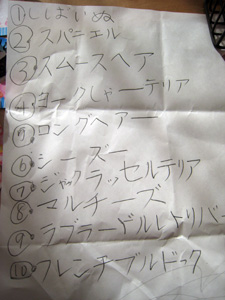 ①ししばいぬ
②スパニエル
③スムースヘア
④ヨークしゃーテリア
⑤ロングヘアー
⑥シーズー
⑦ジャックラッセルテリア
⑧マルチーズ
⑨ラブラードルレトリバー
⑩フレンチブルドック